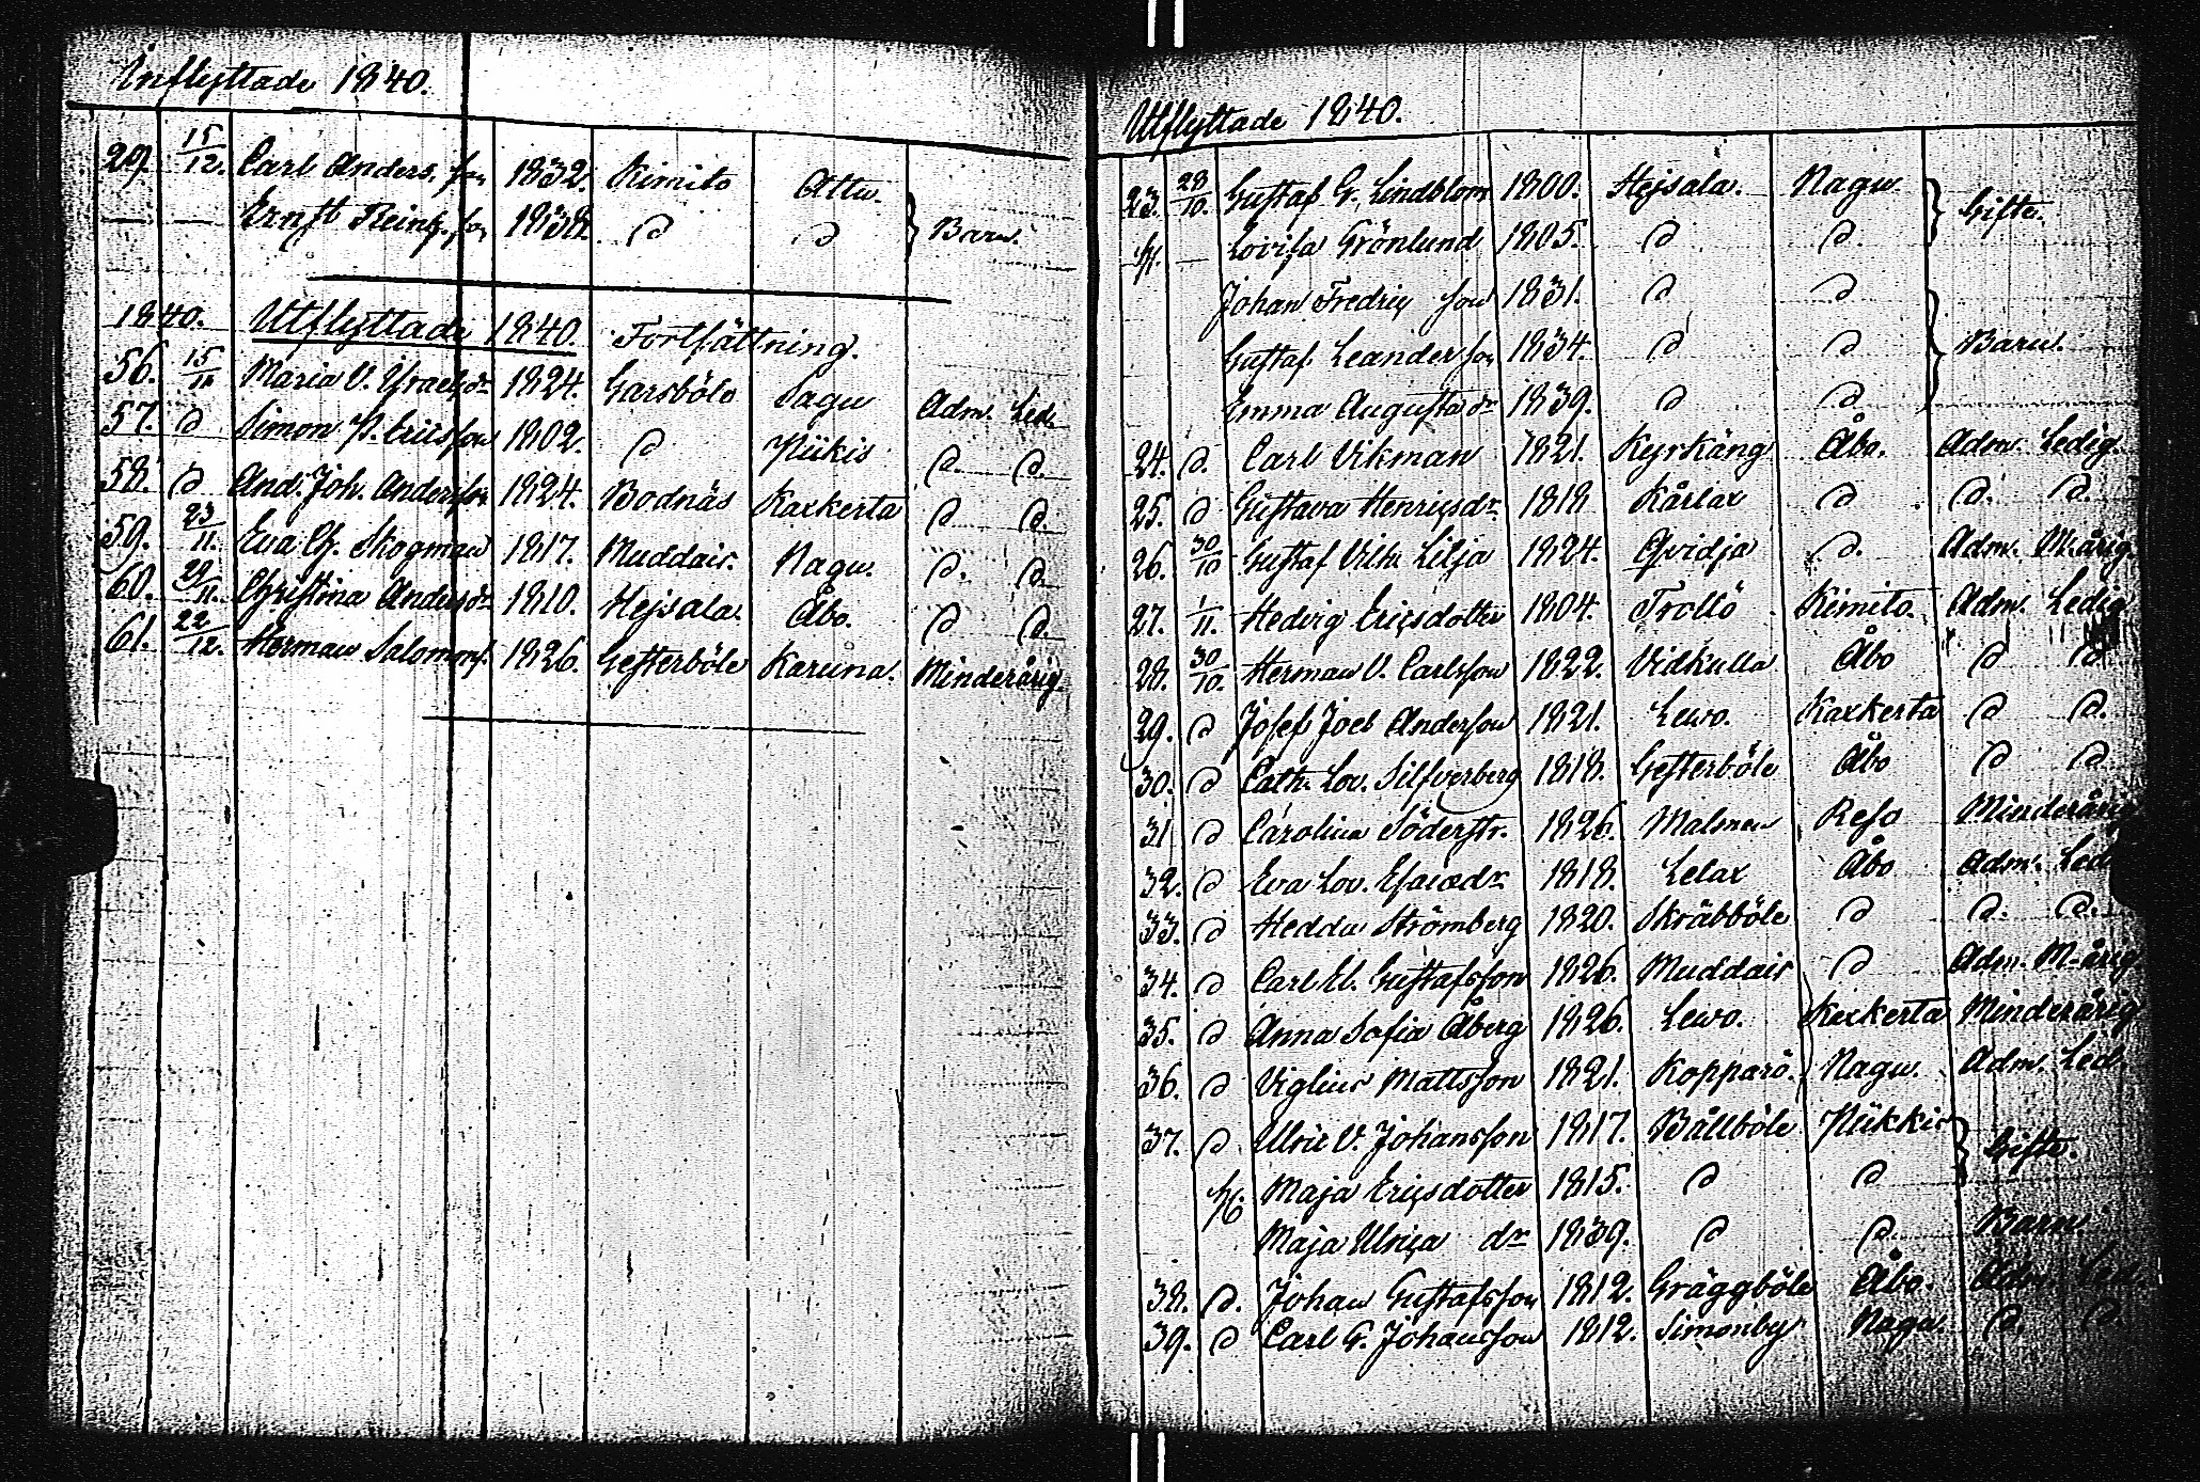 Inflyttade 1840.
29. 15/12. Carl Anders. son 1832. Kimito Attu.
Ernst Reinh. son 1838. d d } Barn.
1840. Utflyttade 1840. Fortsättning.
56. 15/11 Maria V. Israelsdr 1824. Garsböle Sagu Adm. Led.
57. d Simon P. Ericsson 1802. d Piikis d. d.
58. d And. Joh. Andersson 1824. Bodnäs Kaxkerta d d.
59. 23/11. Eva Ch. Skogman 1817. Muddais. Nagu. d. d.
60. 29/11. Christina Andersdr 1810. Hejsala. Åbo. d d.
61. 22/12. Herman Salomons. 1826. Gesterböle Karuna. Minderårig.
Utflyttade 1840.
23. 28/10. Gustaf G. Lindblom 1800. Hejsala. Nagu. } Gifte.
H. — Lovisa Grönlund 1805. d d.
Johan Fredric son 1831. d d
Gustaf Leander son 1834. d d } Barn.
Emma Augusta dr 1839. d d.
24. d. Carl Vikman 1821. Kyrkäng Åbo. Adm. Ledig.
25. d Gustava Henricsdr. 1818 Kårlax d d. d.
26. 30/10 Gustaf Vilh. Lilja 1824. Qvidja d. Adm. M. årig.
27. 1/11. Hedvig Ericsdotter 1804. Trollö Kimito. Adm. Ledig
28. 30/10. Herman V. Carlsson 1822. Vidkulla Åbo d d
29. d Josef Joel Andersson 1821. Lewo. Kaxkerta d d.
30. d Cath. Lov. Silfverberg 1818. Gesterböle Åbo d d
31 d Carolina Söderstr. 1826. Malmen Reso Minderårig
32. d Eva Lov. Esaiædr 1818. Lelax Åbo Adm. Led.
33. d Hedda Strömberg 1820. Skräbböle d d. d.
34. d Carl El. Gustafsson 1826. Muddais d Adm. M. årig
35. d Anna Sofia Åberg 1826. Lewo. Kaxkerta Minderårig
36. d Viglius Mattsson 1821. Kopparö. Nagu. Adm. Led.
37. d Ulric V. Johansson 1817. Bållböle Piikkis } Gifte.
H. Maja Ericsdotter 1815. d d
Maja Ulrica dr 1839. d d. Barn.
38. d. Johan Gustafsson 1812. Gräggböle Åbo. Adm. Led.
39. d Carl G. Johansson 1812. Simonby Nagu. d. d